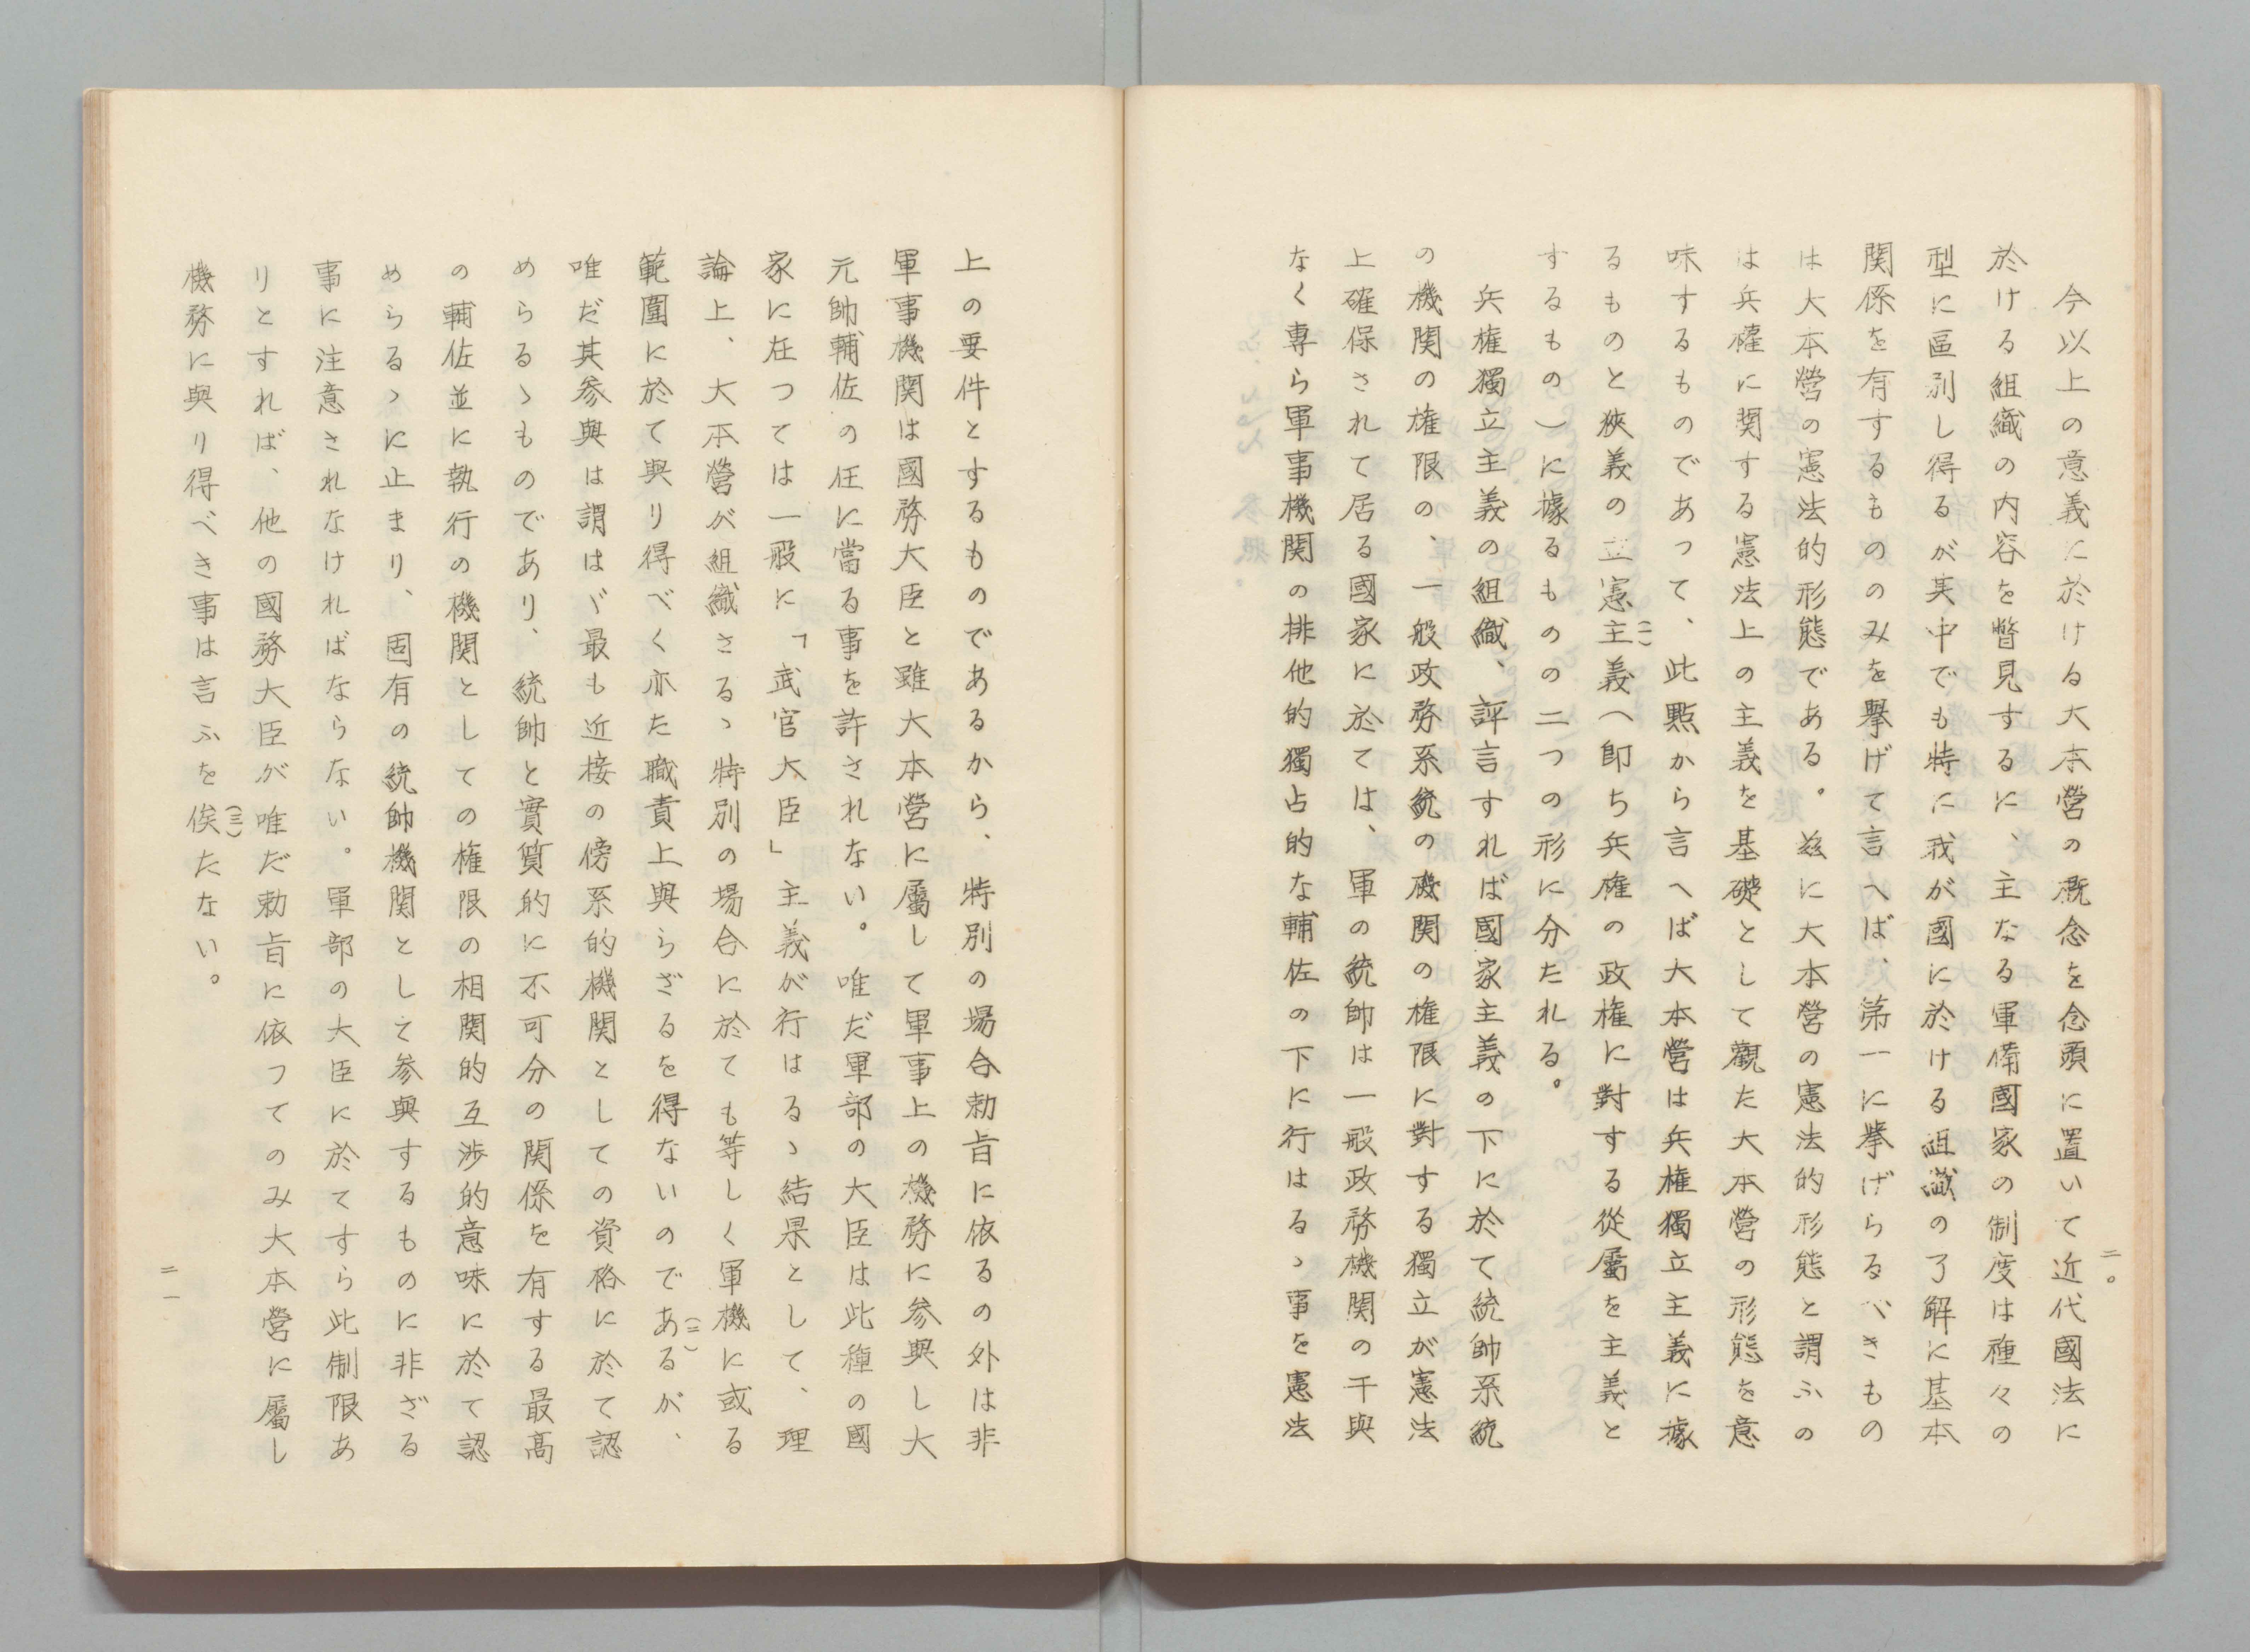 今以上の意義に於ける大本營の概念を念頭に置いて近代國法に
於ける組織の内容を瞥見するに、主なる軍備國家の制度は種々の
型に區別し得るが其中でも特に我が國に於ける組織の了解に基本
関係を有するもののみを擧げて言へば、第一に挙げらるべきもの
は大本營の憲法的形態である。玆に大本營の憲法的形態と謂ふの
は兵権に関する憲法上の主義を基礎として觀た大本營の形態を意
味するものであって、此點から言へば大本營は兵権獨立主義に據
るものと狹義の立憲主義(一)(即ち兵権の政権に對する從屬を主義と
するもの)に據るものの二つの形に分たれる。
兵権獨立主義の組織、評言すれば國家主義の下に於て統帥系統
の機関の権限の、一般政務系統の機関の権限に對する獨立が憲法
上確保されて居る國家に於ては、軍の統帥は一般政務機関の干與
なく専ら軍事機関の排他的獨占的な輔佐の下に行はるゝ事を憲法
二〇
上の要件とするものであるから、特別の場合勅旨に依るの外は非
軍事機関は國務大臣と雖大本營に屬して軍事上の機務に参與し大
元帥輔佐の任に當る事を許されない。唯だ軍部の大臣は此種の國
家に在つては一般に「武官大臣」主義が行はるゝ結果として、理
論上、大本營が組織さるゝ特別の場合に於ても等しく軍機に或る
範圍に於て與り得べく亦た職責上與らざるを得ないのである(二)が、
唯だ其参與は謂はゞ最も近接の傍系的機関としての資格に於て認
めらるゝものであり、統帥と實質的に不可分の関係を有する最高
の輔佐並に執行の機関としての権限の相関的互渉的意味に於て認
めらるゝに止まり、固有の統帥機関として参與するものに非ざる
事に注意されなければならない。軍部の大臣に於てすら此制限あ
りとすれば、他の國務大臣が唯だ勅旨に依つてのみ大本營に屬し
機務に與り得べき事は言ふを俟(三)たない。
二一